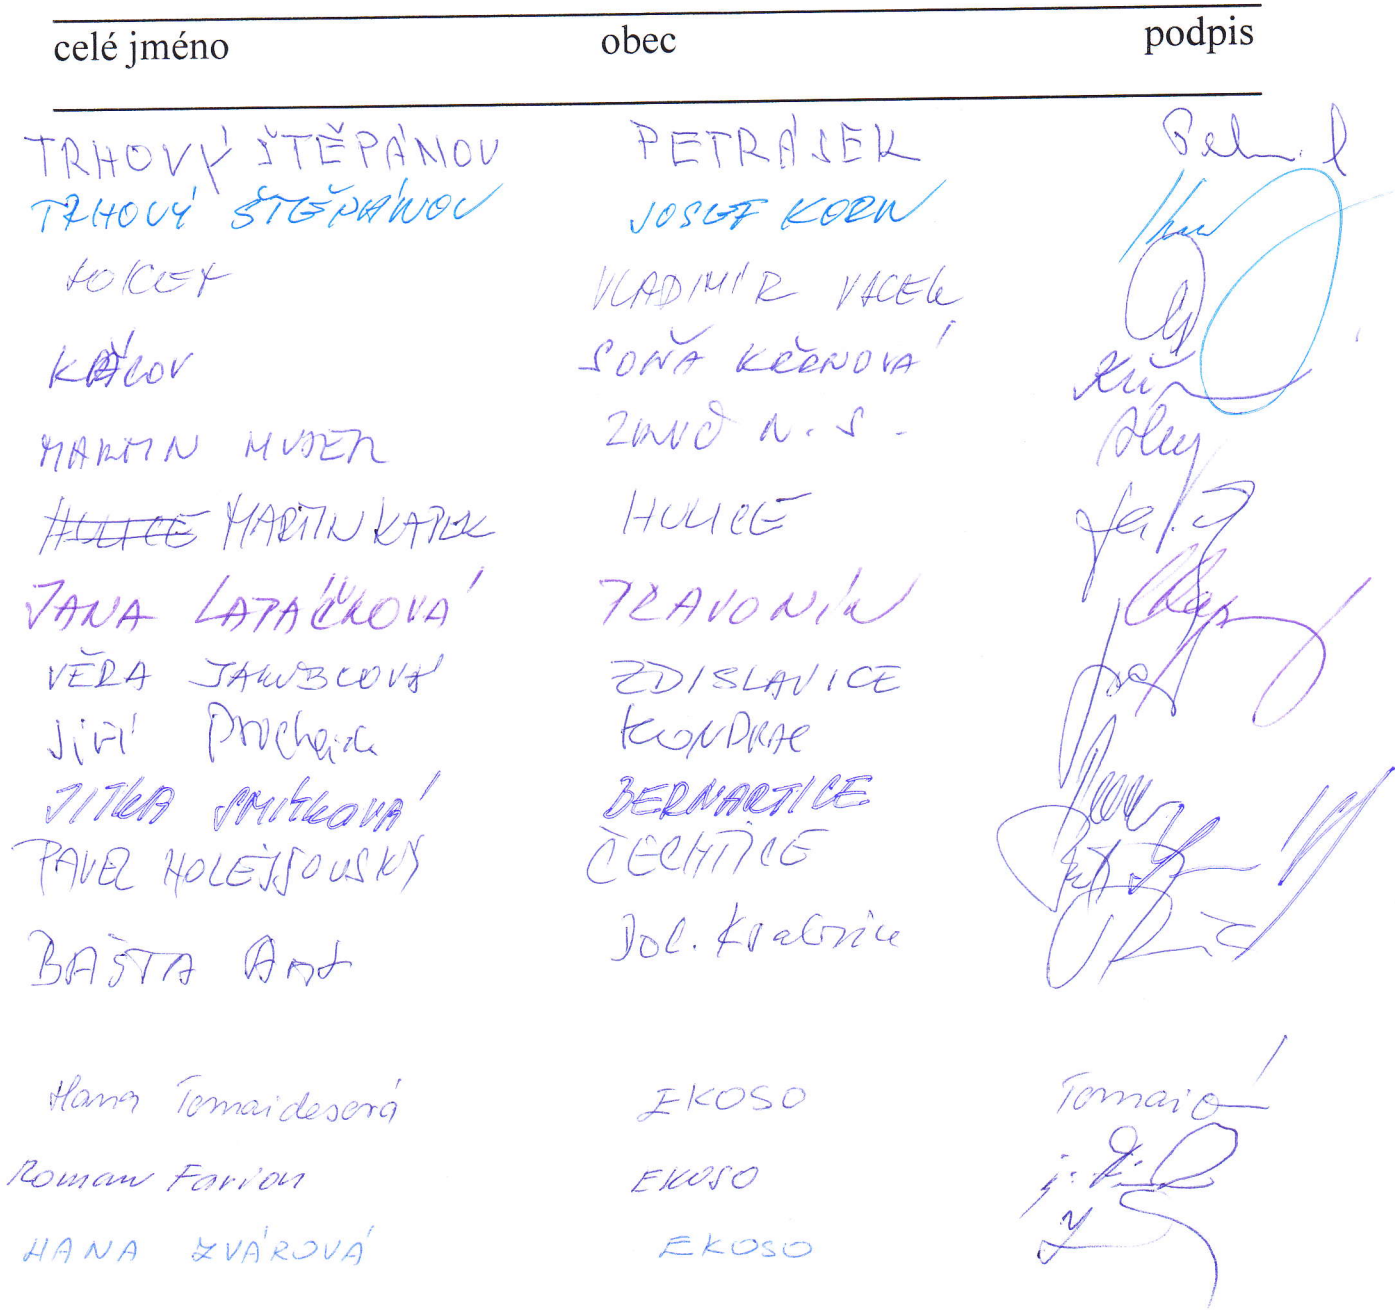 celé jméno obec podpis
TRHOVÝ ŠTĚPÁNOV PETRÁSEK
TRHOVÝ ŠTĚPÁNOV JOSEF KORN
VLADIMÍR VACEK
KÁCOV SOŇA KŘENOVÁ
MARTIN N. S.
HULICE MARTIN HULICE
JANA LAPÁČKOVÁ TEAVONÍN
VĚRA JAKUBCOVÁ ZDISLAVICE
JiŘí Procházka KONDRAC
JITKA SMÍTKOVÁ BERNARTICE
PAVEL HOLEJŠOVSKÝ ČECHTICE
BAŠTA Ant Dol. Kralovice
Hana Tomaidesová EKOSO Tomaid
Roman Farion EKOSO
HANA ZVÁROVÁ EKOSO